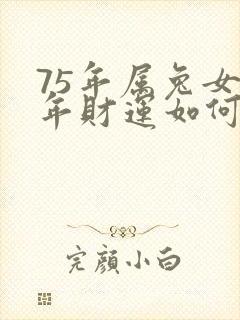 75年属兔女
年财运如何
完颜小白